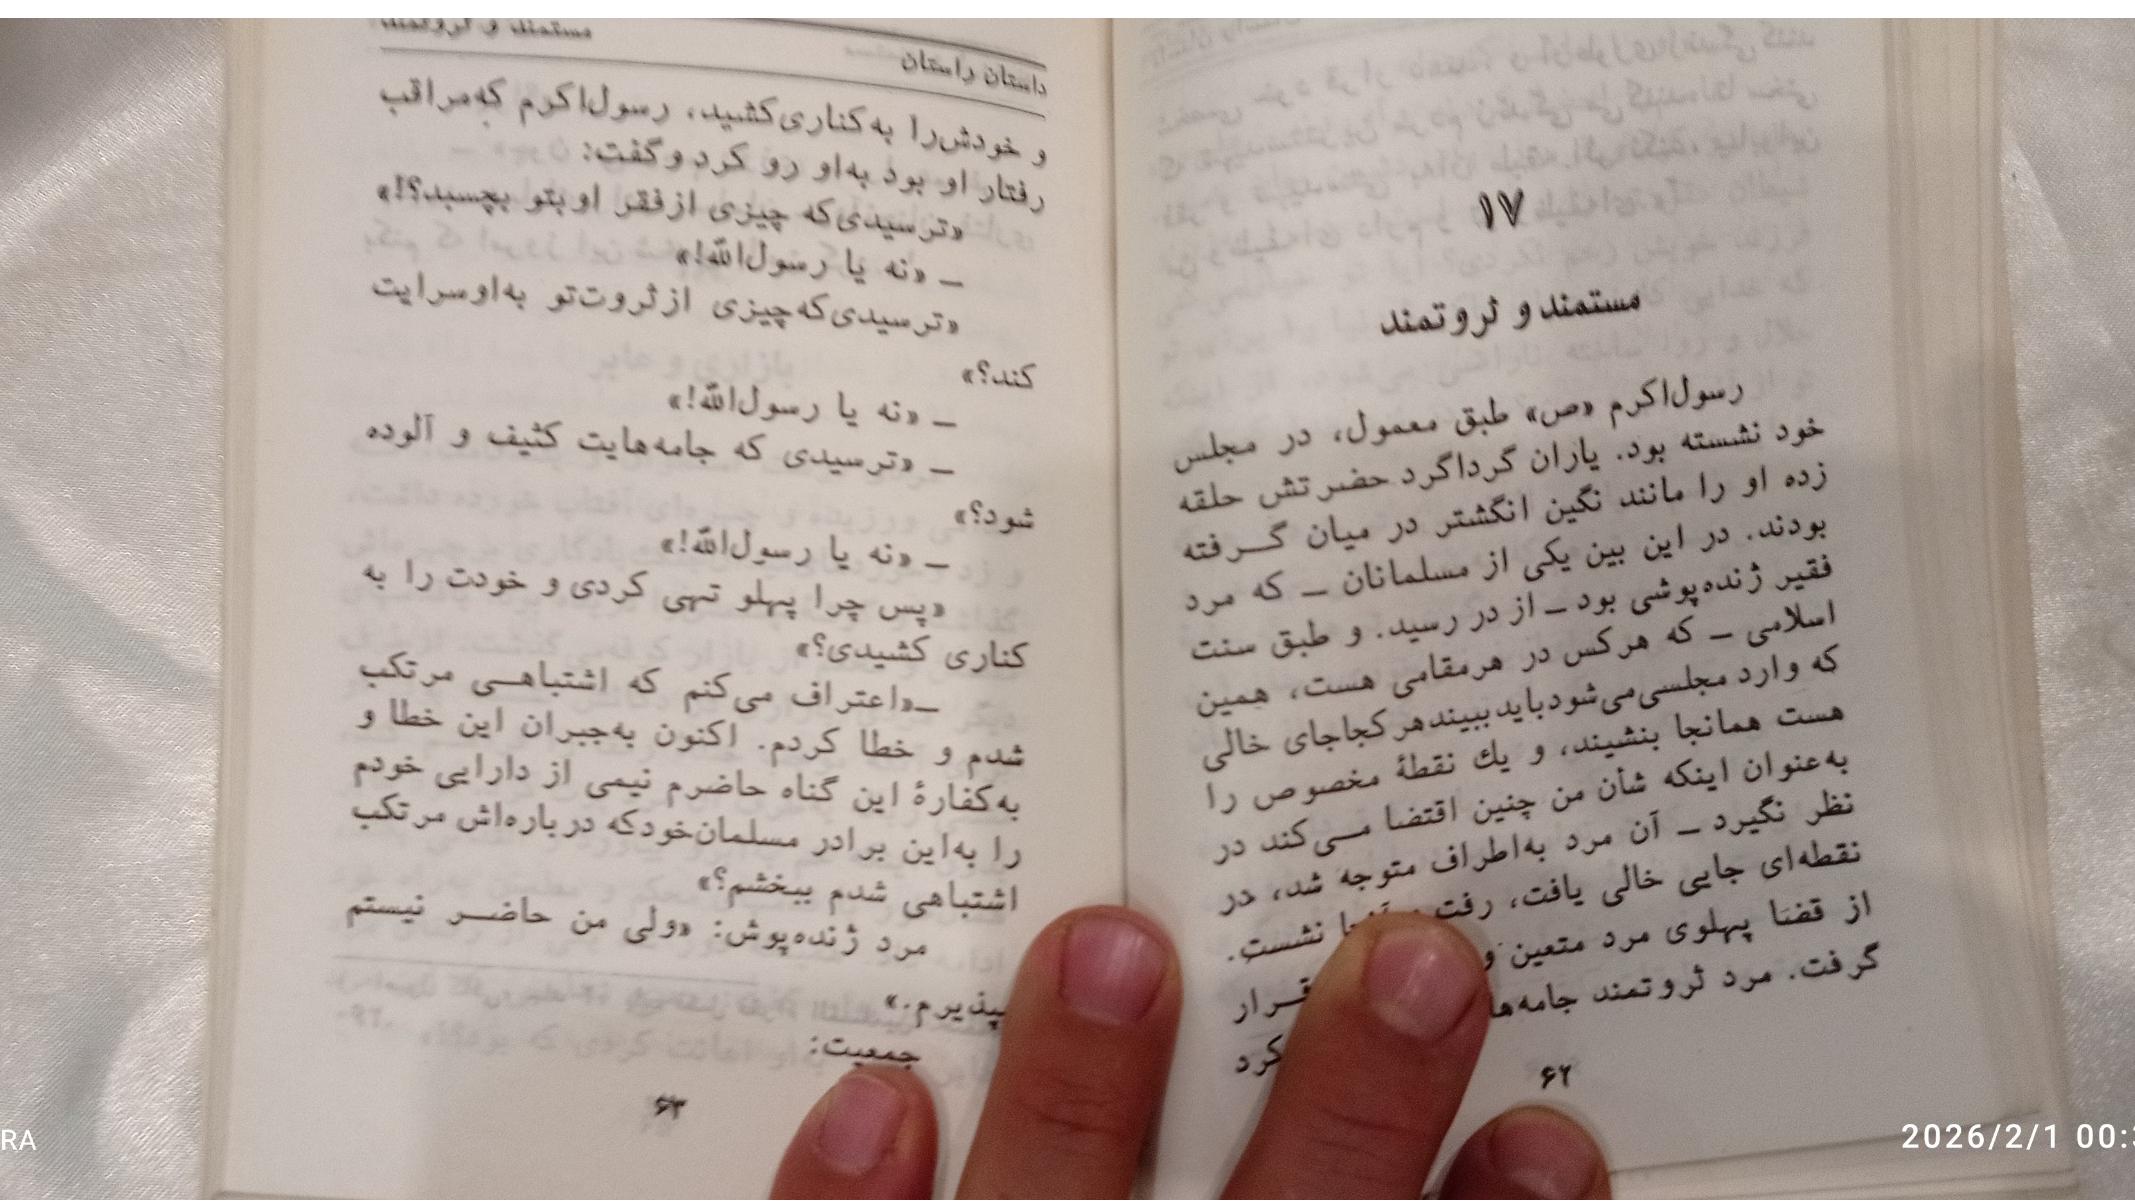 ۱۷
مستمند و ثروتمند
رسول‌اکرم «ص» طبق معمول، در مجلس
خود نشسته بود. یاران گرداگرد حضرتش حلقه
زده او را مانند نگین انگشتر در میان گرفته
بودند. در این بین یکی از مسلمانان ـ که مرد
فقیر ژنده‌پوشی بود ـ از در رسید. و طبق سنت
اسلامی ـ که هرکس در هرمقامی هست، همین
که وارد مجلسی می‌شود باید ببیند هرکجا جای خالی
هست همانجا بنشیند، و یك نقطهٔ مخصوص را
به‌عنوان اینکه شأن من چنین اقتضا می‌کند در
نظر نگیرد ـ آن مرد به‌اطراف متوجه شد، در
نقطه‌ای جایی خالی یافت، رفت نشست.
از قضا پهلوی مرد متعین و قرار
گرفت. مرد ثروتمند جامه‌ها کرد
۶۲
مستمند و ثروتمند
داستان راستان
و خودش‌را به‌کناری‌کشید، رسول‌اکرم که‌مراقب
رفتار او بود به‌او رو کرد و گفت:
«ترسیدی‌که چیزی ازفقر او بتو بچسبد؟!»
ـ «نه یا رسول‌الله!»
«ترسیدی‌که‌چیزی ازثروت‌تو به‌اوسرایت
کند؟»
ـ «نه یا رسول‌الله!»
ـ «ترسیدی که جامه‌هایت کثیف و آلوده
شود؟»
ـ «نه یا رسول‌الله!»
«پس چرا پهلو تهی کردی و خودت را به
کناری کشیدی؟»
ـ«اعتراف می‌کنم که اشتباهی مرتکب
شدم و خطا کردم. اکنون به‌جبران این خطا و
به‌کفارهٔ این گناه حاضرم نیمی از دارایی خودم
را به‌این برادر مسلمان‌خودکه درباره‌اش مرتکب
اشتباهی شدم ببخشم؟»
مرد ژنده‌پوش: «ولی من حاضر نیستم
بپذیرم.»
جمعیت:
۶۳
RA
2026/2/1 00: